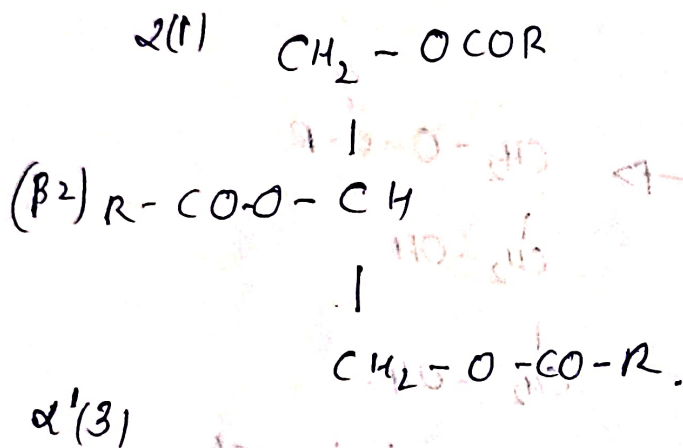 α(1) CH₂ - OCOR
|
(β2) R - CO-O - CH
|
CH₂ - O - CO - R.
α'(3)